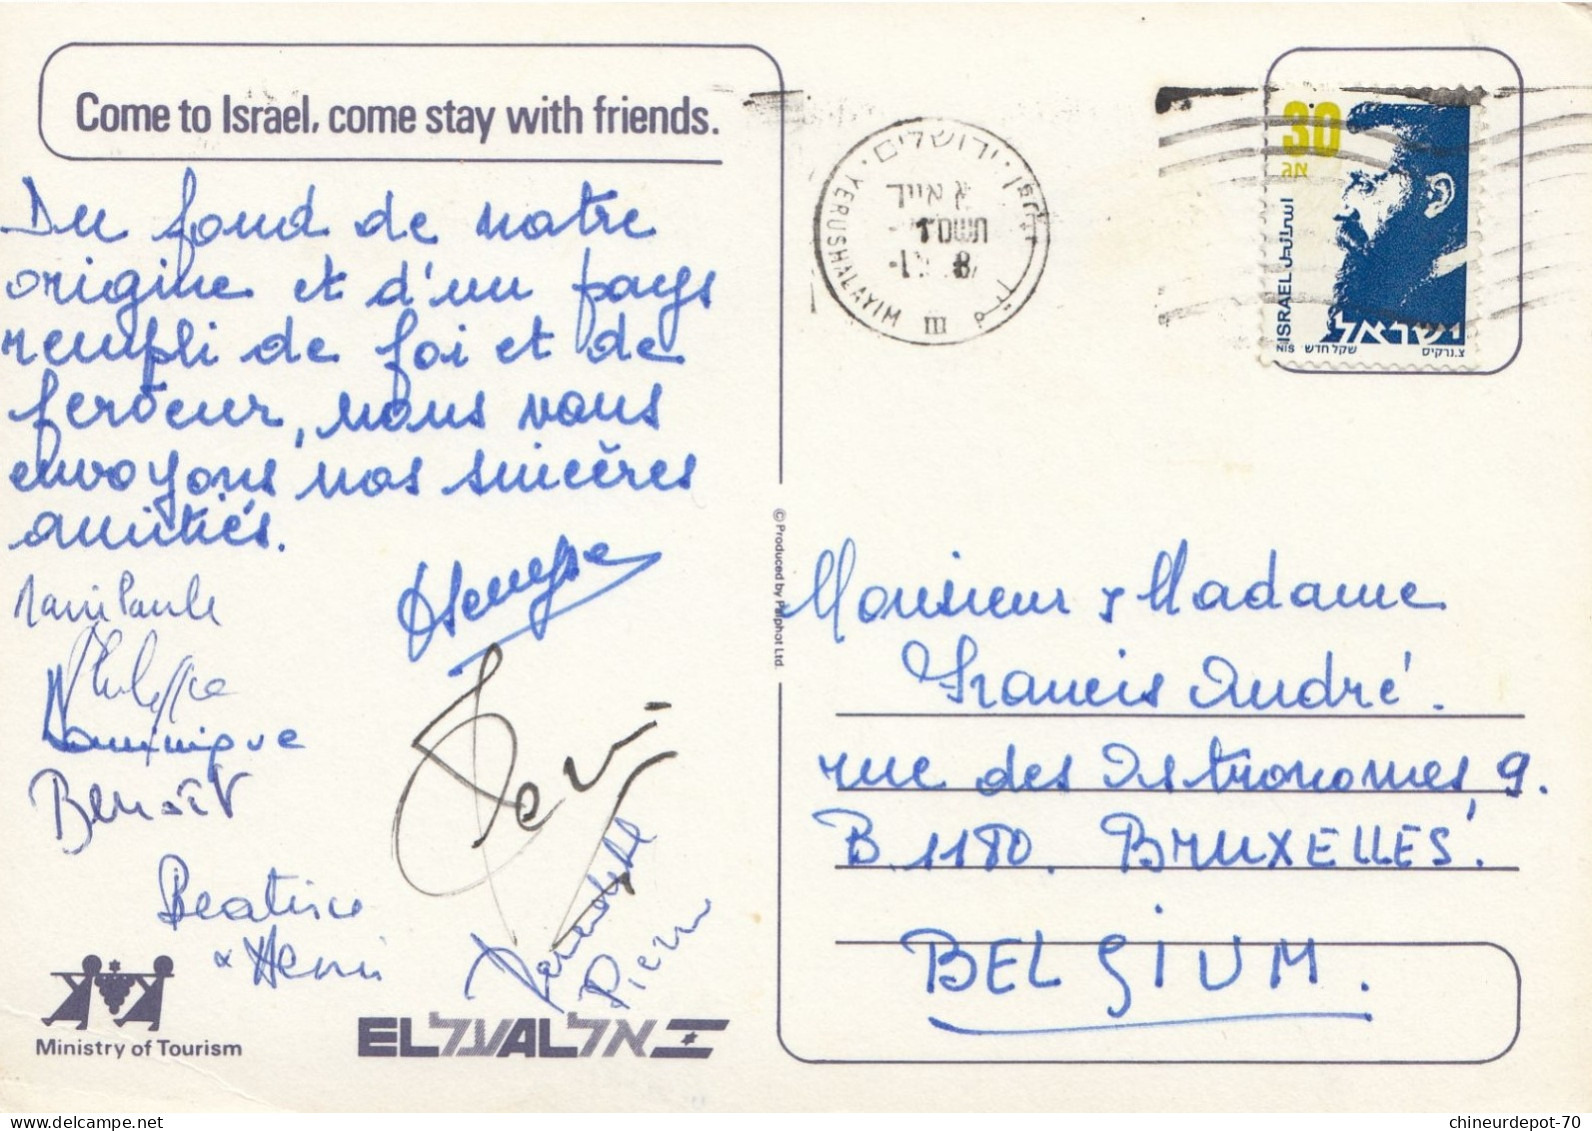 Come to Israel, come stay with friends.
Du fond de notre
origine et d'un pays
rempli de foi et de
ferveur, nous vous
envoyons nos sincères
amitiés.
Philippe
Dominique
Benoît
Beatrice
& Henri
Bernadette
Pierre
Ministry of Tourism
EL אל על AL אל
© Produced by Palphot Ltd.
ירושלים
YERUSHALAYIM
III
30
אג
ISRAEL
اسرائيل
ישראל
NIS שקל חדש
צ.נרקיס
Monsieur & Madame
Francis André.
rue des Astronomes, 9.
B. 1180. BRUXELLES.
BELGIUM.
chineurdepot-70